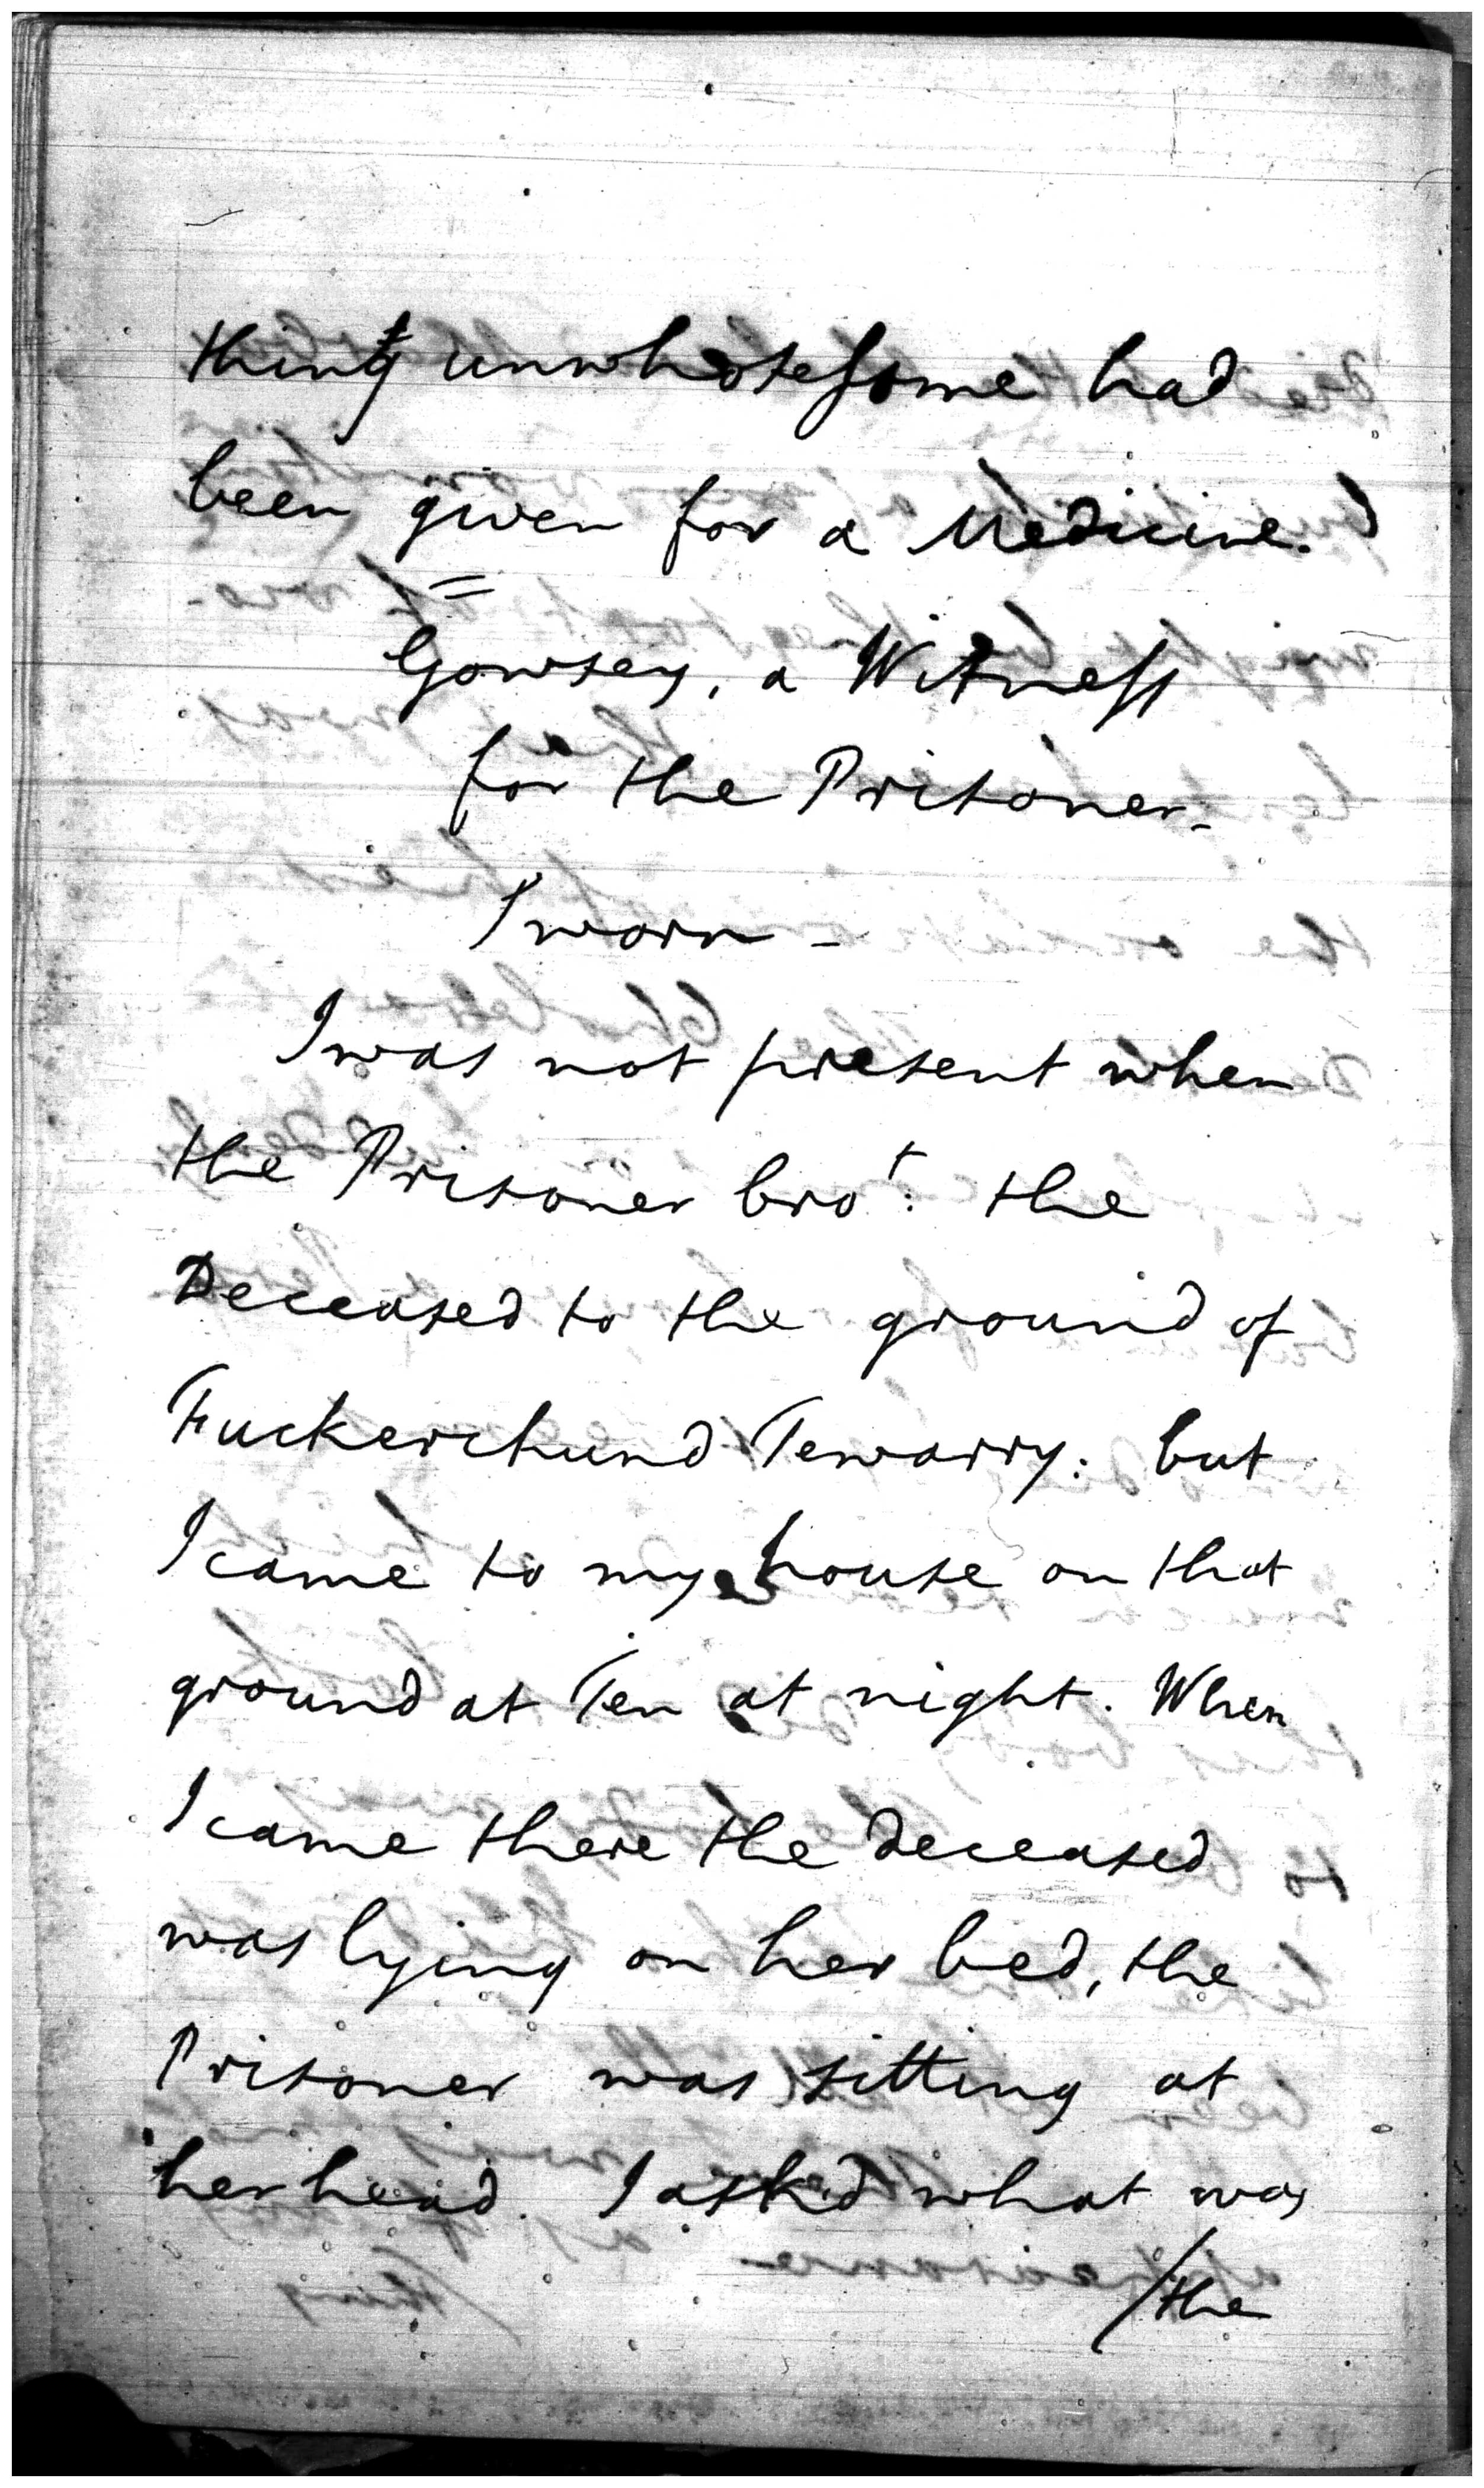 thing unwholesome had
been given for a Medicine.)
Gowsey, a Witness
for the Prisoner_
Sworn_
I was not present when
the Prisoner bro:t the
Deceased to the ground of
Fuckerchund Tewarry: but
I came to my house on that
ground at Ten at night. When
I came there the deceased
was lying on her bed, the
Prisoner was sitting at
her head. I asked what was
/the